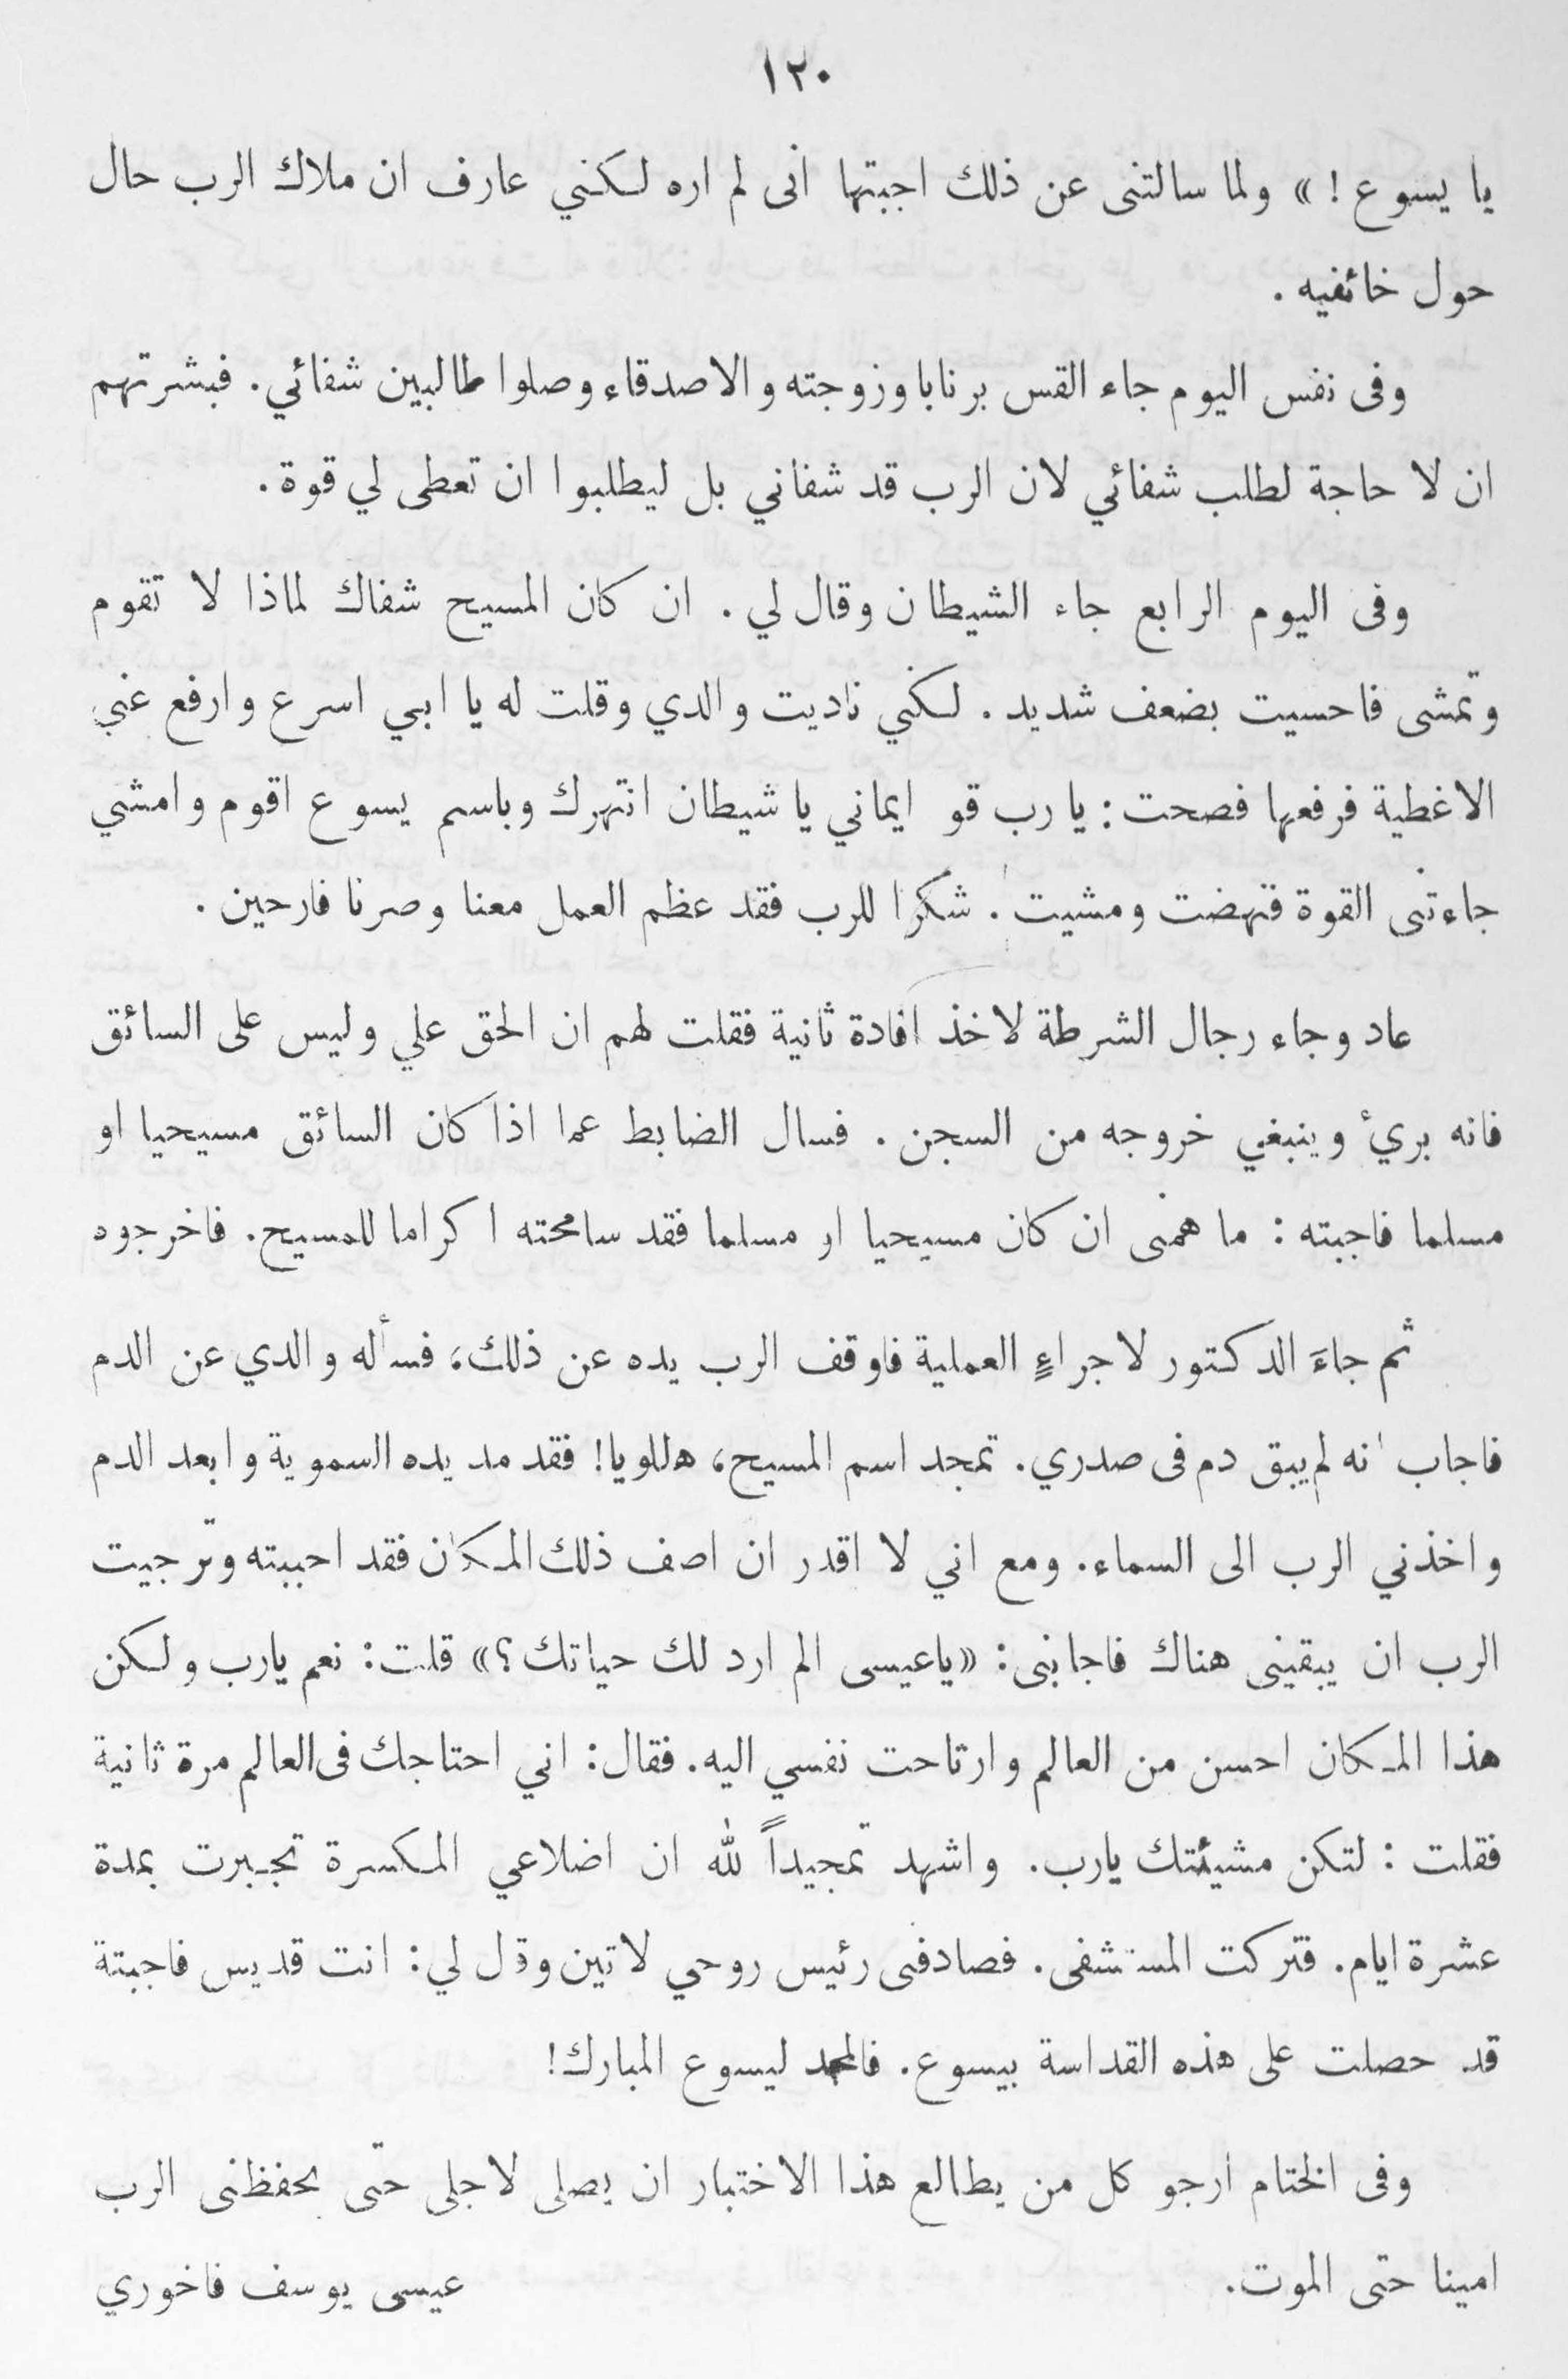 ١٢٠
يا يسوع ! » ولما سالتنى عن ذلك اجبتها انى لم اره لكنني عارف ان ملاك الرب حال
حول خائفيه .
وفى نفس اليوم جاء القس برنابا وزوجته والاصدقاء وصلوا طالبين شفائي . فبشرتهم
ان لا حاجة لطلب شفائي لان الرب قد شفاني بل ليطلبوا ان تعطى لي قوة .
وفى اليوم الرابع جاء الشيطان وقال لي . ان كان المسيح شفاك لماذا لا تقوم
وتمشى فاحسيت بضعف شديد . لكني ناديت والدي وقلت له يا ابي اسرع وارفع عني
الاغطية فرفعها فصحت : يا رب قو ايماني يا شيطان انتهرك وباسم يسوع اقوم وامشي
جاءتنى القوة فنهضت ومشيت . شكرا للرب فقد عظم العمل معنا وصرنا فارحين .
عاد وجاء رجال الشرطة لاخذ افادة ثانية فقلت لهم ان الحق علي وليس على السائق
فانه برئ وينبغي خروجه من السجن . فسال الضابط عما اذا كان السائق مسيحيا او
مسلما فاجبته : ما همنى ان كان مسيحيا او مسلما فقد سامحته اكراما للمسيح . فاخرجوه
ثم جاءَ الدكتور لاجراءِ العملية فاوقف الرب يده عن ذلك، فسأله والدي عن الدم
فاجاب انه لم يبق دم فى صدري . تمجد اسم المسيح، هللويا! فقد مد يده السموية وابعد الدم
واخذني الرب الى السماء . ومع اني لا اقدر ان اصف ذلك المكان فقد احببته وترجيت
الرب ان يبقينى هناك فاجابنى : «ياعيسى الم ارد لك حياتك؟» قلت : نعم يارب ولكن
هذا المكان احسن من العالم وارتاحت نفسي اليه . فقال : اني احتاجك فى العالم مرة ثانية
فقلت : لتكن مشيئتك يارب . واشهد تمجيداً لله ان اضلاعي المكسرة تجبرت بمدة
عشرة ايام . فتركت المستشفى . فصادفنى رئيس روحي لاتين وقال لي : انت قديس فاجبتة
قد حصلت على هذه القداسة بيسوع . فالمجد ليسوع المبارك!
وفى الختام ارجو كل من يطالع هذا الاختبار ان يصلى لاجلى حتى يحفظنى الرب
امينا حتى الموت . عيسى يوسف فاخوري